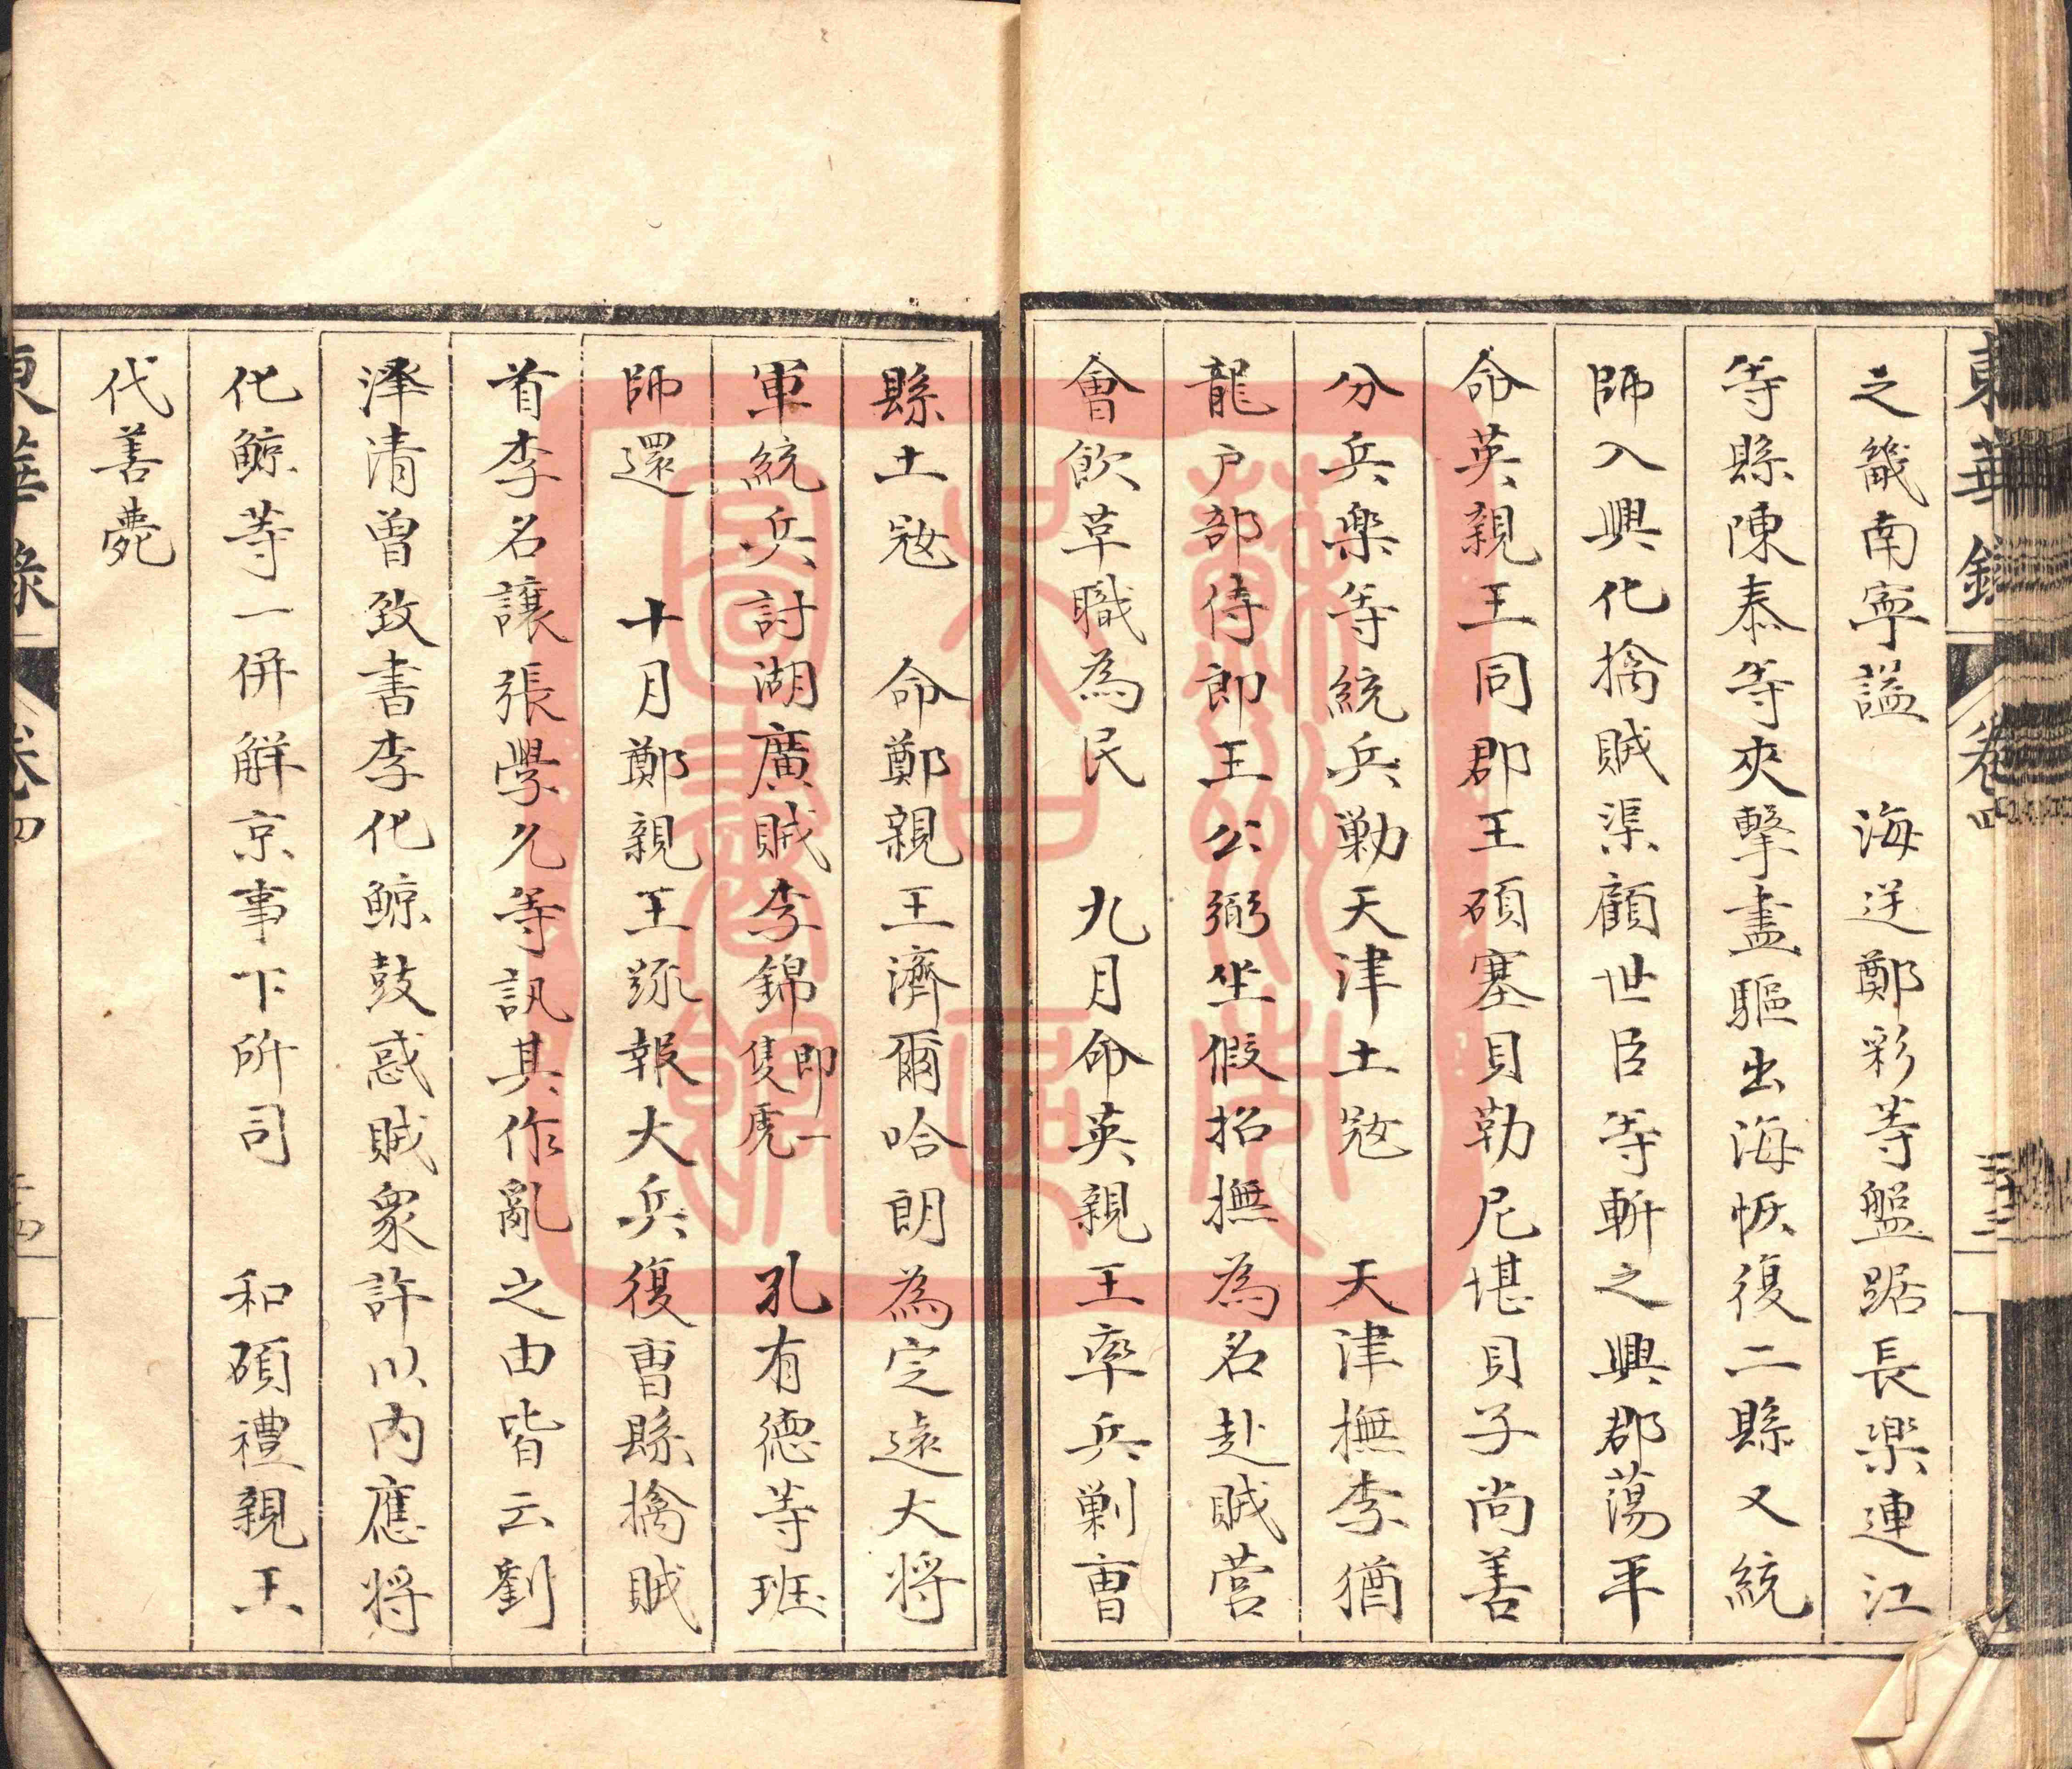 東華錄 卷四 三十三
之畿南寧謐 海逆鄭彩等盤踞長樂連江
等縣陳泰等夾擊盡驅出海恢復二縣又統
師入興化擒賊渠顧世臣等斬之興郡蕩平
命英親王同郡王碩塞貝勒尼堪貝子尚善
分兵樂等統兵勦天津土寇 天津撫李猶
龍戶部侍郎王公弼坐假招撫為名赴賊營
會飲革職為民 九月命英親王率兵剿曹
縣土寇 命鄭親王濟爾哈朗為定遠大将
軍統兵討湖廣賊李錦即一隻虎 孔有德等班
師還 十月鄭親王疏報大兵復曹縣擒賊
首李名讓張學允等訊其作亂之由皆云劉
澤清曾致書李化鯨鼓惑賊衆許以內應将
化鯨等一併解京事下所司 和碩禮親王
代善薨
東華錄 卷四
蘇州市文史館圖書館